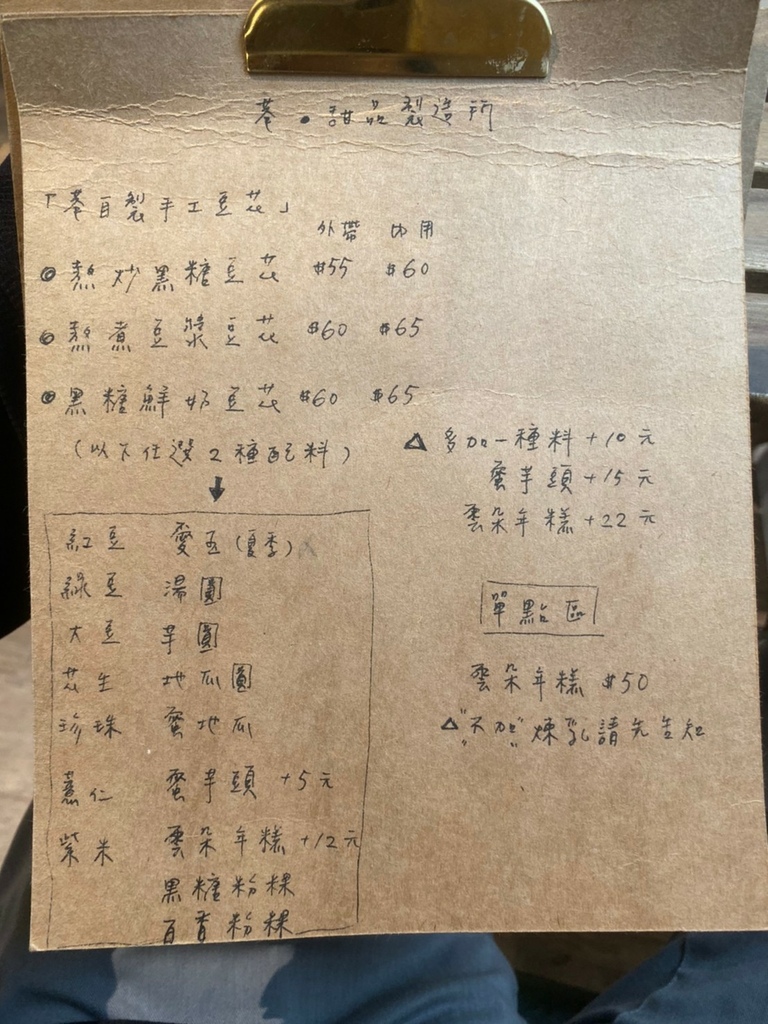 荖。甜品製造所
「荖自製手工豆花」
外帶 內用
◎ 熬炒黑糖豆花 $55 $60
◎ 熬煮豆漿豆花 $60 $65
◎ 黑糖鮮奶豆花 $60 $65
(以下任選2種配料)
紅豆 愛玉(夏季)X
綠豆 湯圓
大豆 芋圓
花生 地瓜圓
珍珠 蜜地瓜
薏仁 蜜芋頭 +5元
紫米 雲朵年糕 +12元
黑糖粉粿
百香粉粿
△ 多加一種料+10元
蜜芋頭+15元
雲朵年糕+22元
單點區
雲朵年糕 $50
△"不加"煉乳請先告知